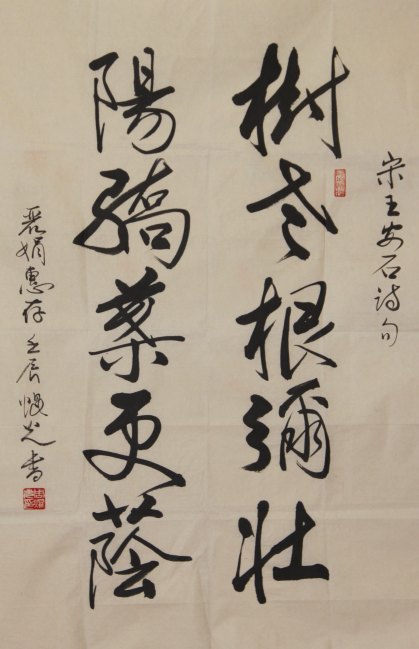 宋王安石詩句
樹老根彌壯
陽驕葉更蔭
麗娟惠存 壬辰 光書